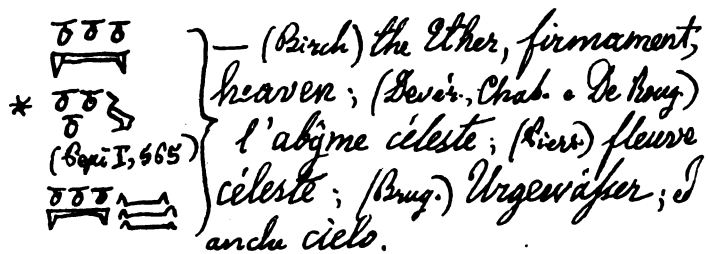 — (Birch) the Ether, firmament,
heaven; (Devér., Chab. e De Roug.)
*
l'abŷme céleste; (Pierr.) fleuve
(Pepi I, 565)
céleste; (Brug.) Urgewäſser;
anche cielo.